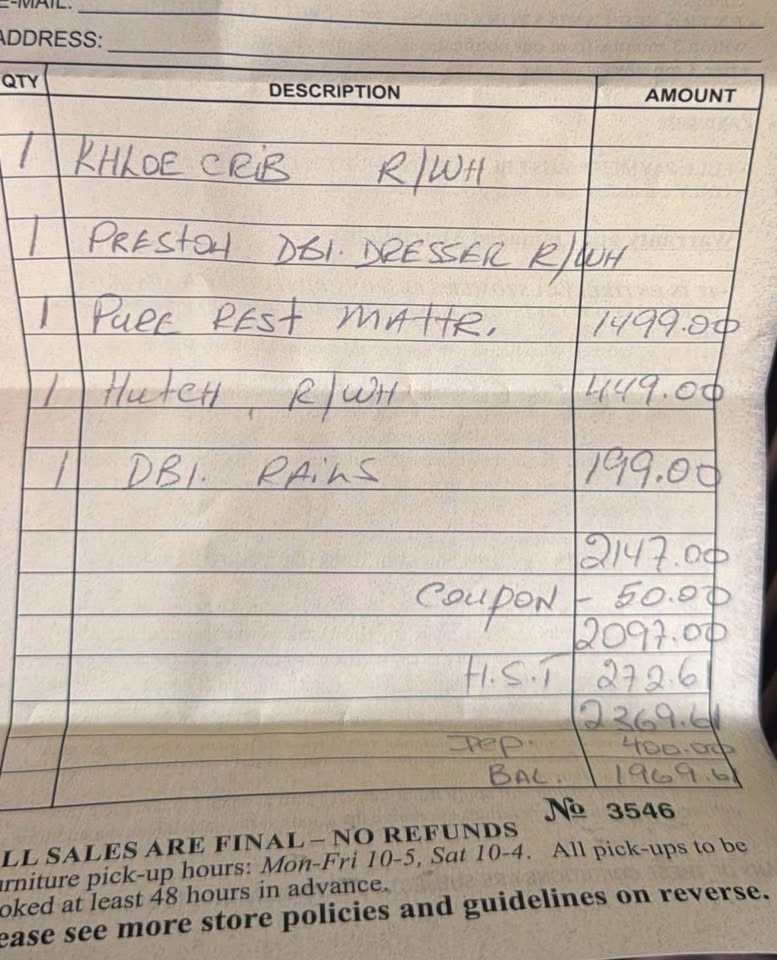 E-MAIL:
ADDRESS:
QTY DESCRIPTION AMOUNT
1 KHLOE CRIB R/WH
1 PRESTON DBl. DRESSER R/WH
1 PURE REST MATTR. 1499.00
1 HUTCH, R/WH 449.00
1 DBl. RAILS 199.00
2147.00
COUPON - 50.00
2097.00
H.S.T 272.61
2369.61
Dep. 400.00
BAL. 1969.61
No 3546
LL SALES ARE FINAL – NO REFUNDS
urniture pick-up hours: Mon-Fri 10-5, Sat 10-4. All pick-ups to be
oked at least 48 hours in advance.
ease see more store policies and guidelines on reverse.